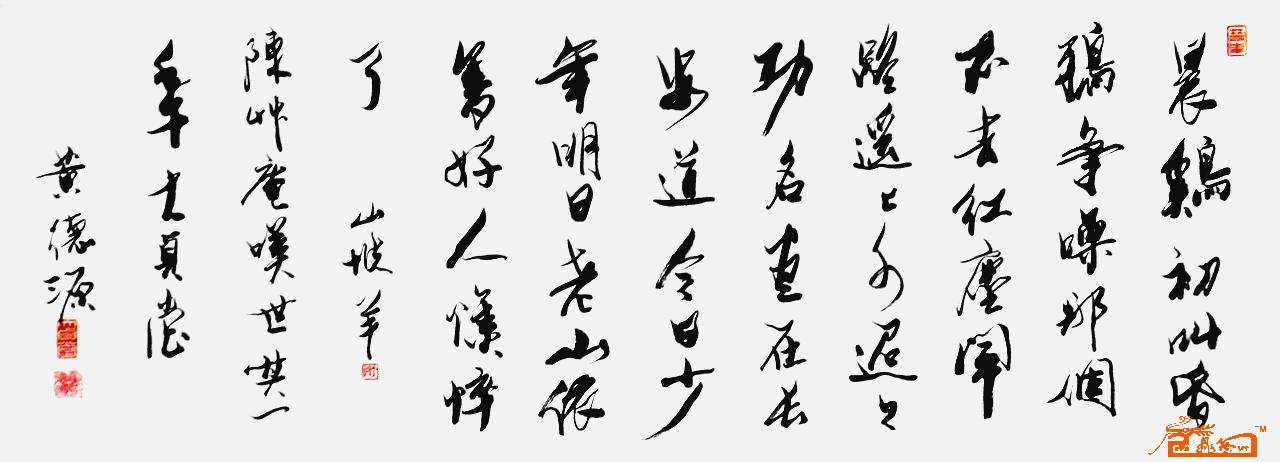 晨鷄初叫昏
鵶争噪那個
不去红塵闹
路遥〻水迢〻
功名盡在長
安道今日少
年明日老山依
舊好人憔悴
了 山坡羊
陳艸庵嘆世其一
黄德源